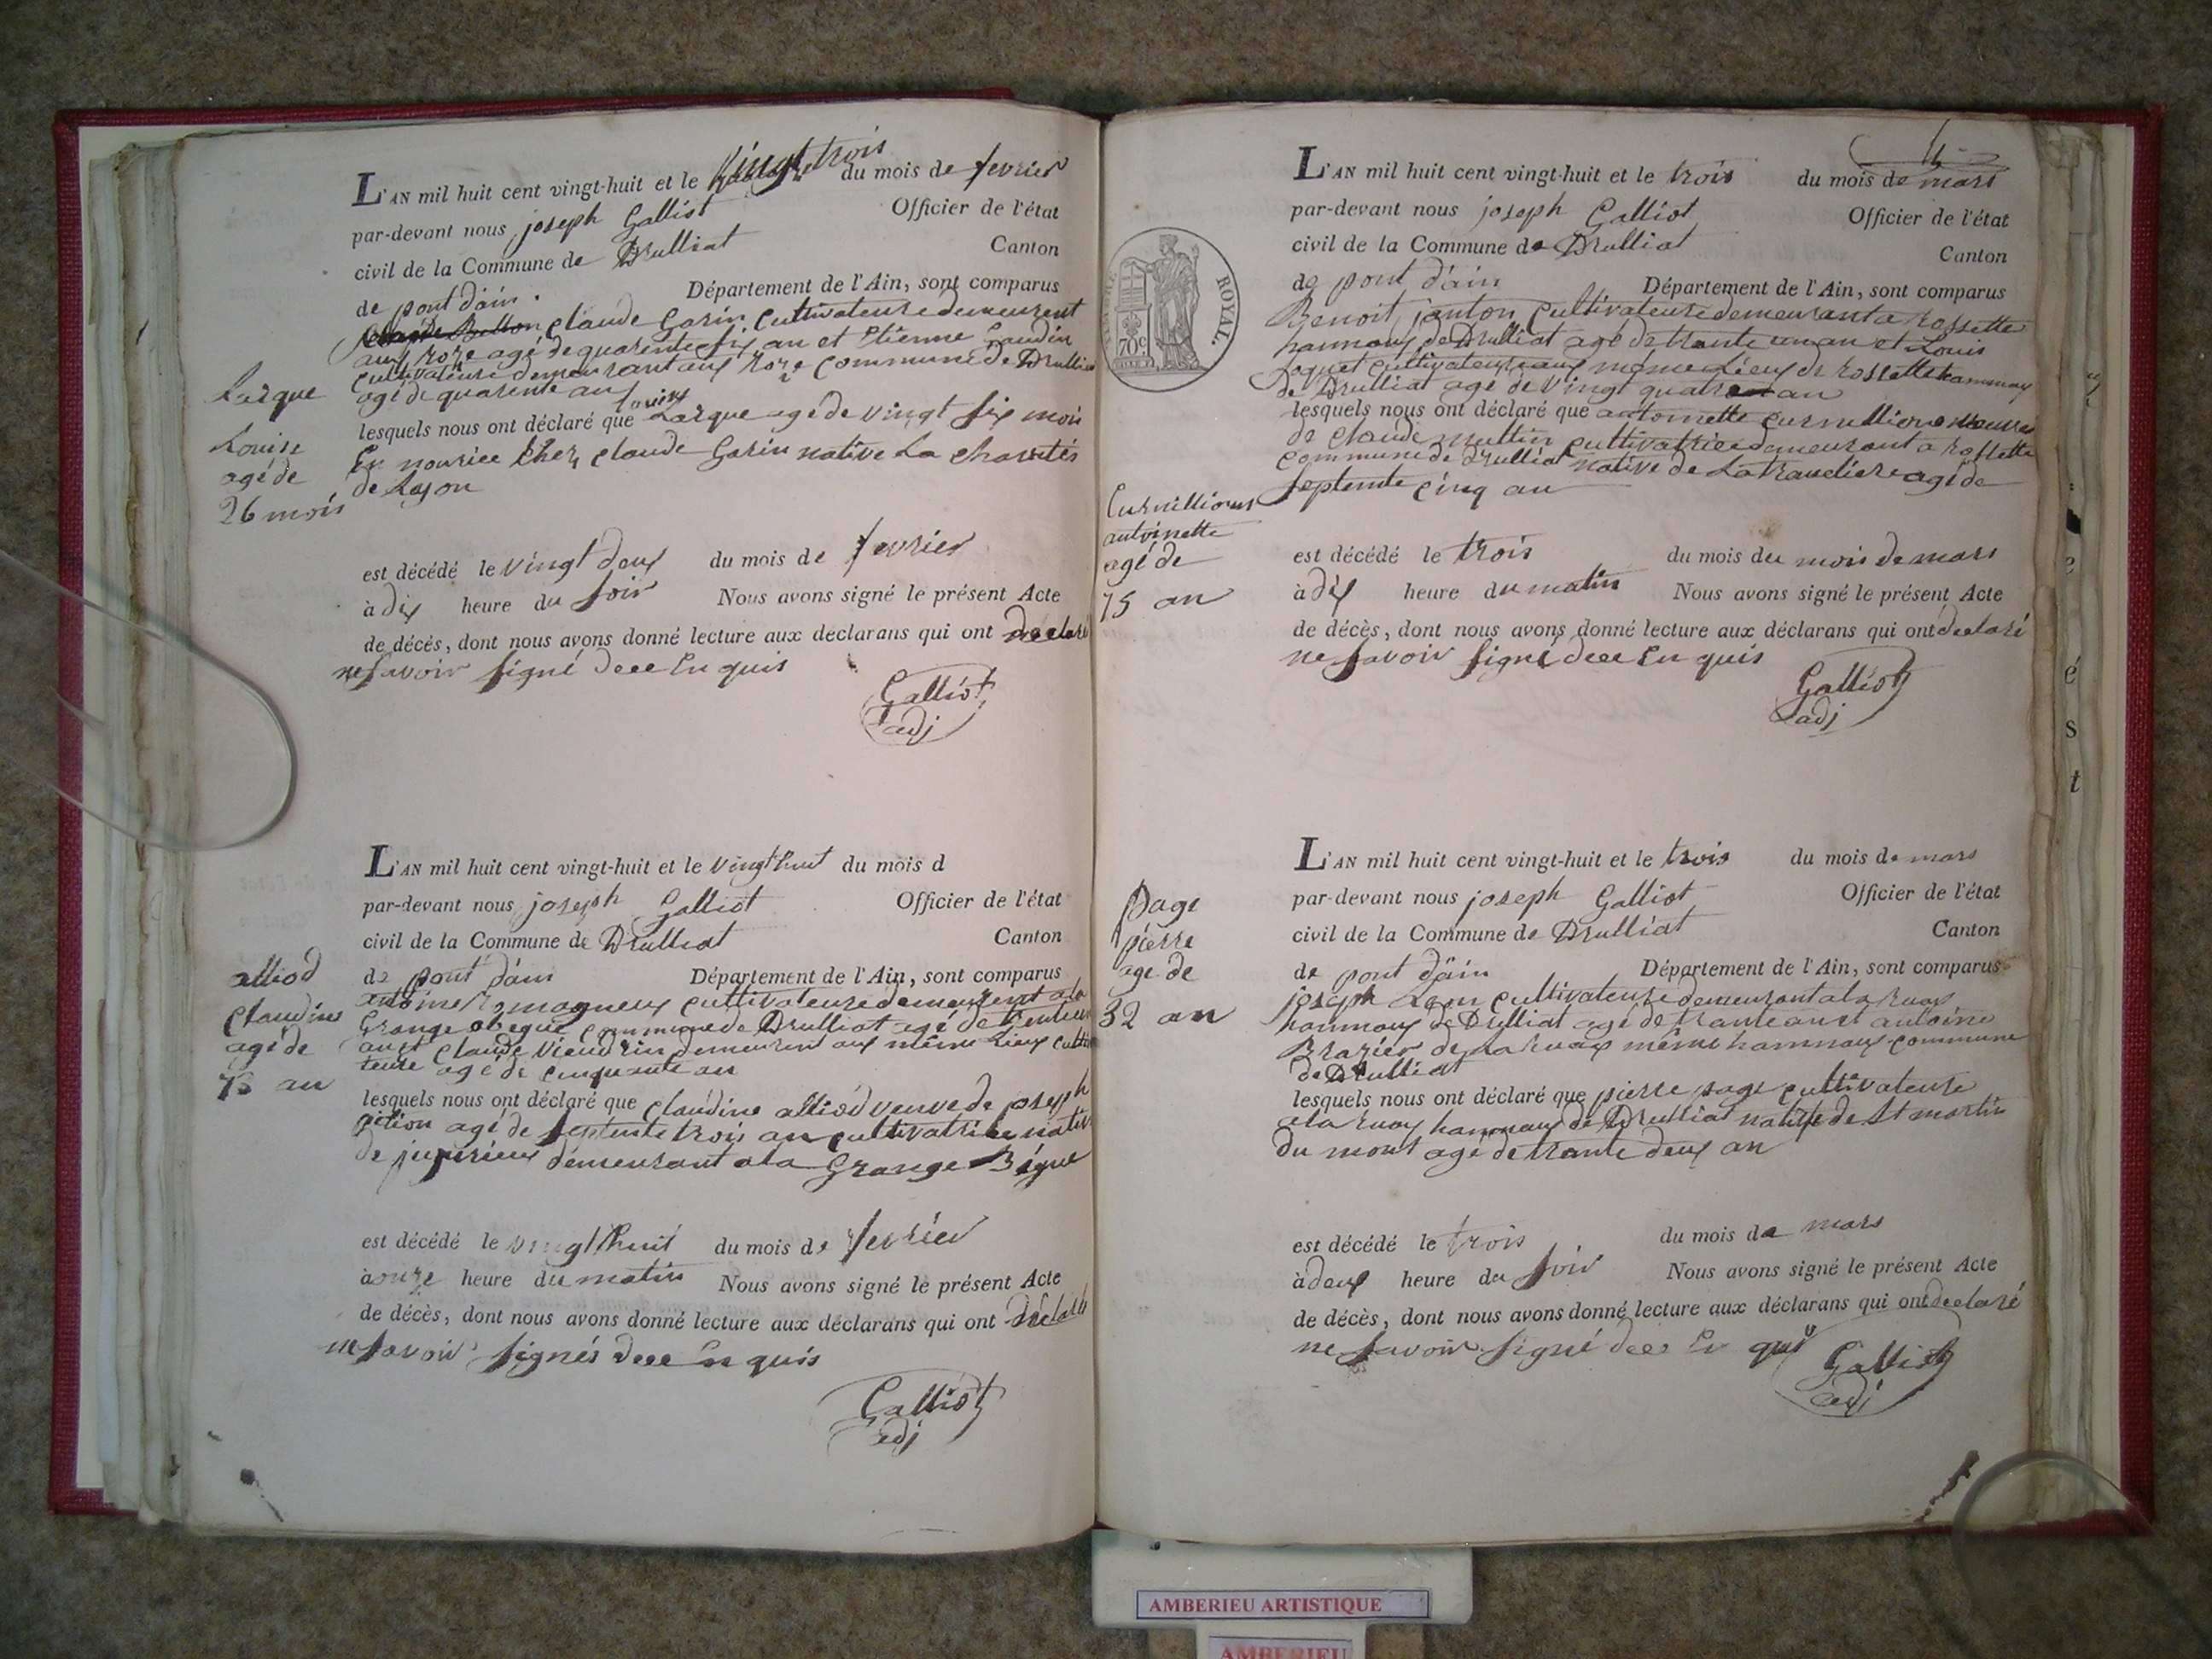 L'AN mil huit cent vingt-huit et le vingt trois du mois de fevrier
par-devant nous joseph Galliot Officier de l'état
civil de la Commune de Drulliat Canton
de pont d'ain . Département de l'Ain, sont comparus
claude Garin cultivateure demeurent
aux roze agé de quarente six an et Etienne Gaudin
cultivateure demeurant aux roze commune de Drulliat
agé de quarente an
lesquels nous ont déclaré que Louise Larque agé de vingt six mois
En nourice Chez claude Garin native La charités
de Layon
Larque
Louise
agé de
26 mois
est décédé le vingt deux du mois de fevrier
à dix heure du soir Nous avons signé le présent Acte
de décès, dont nous avons donné lecture aux déclarans qui ont declaré
ne savoir signé dece En quis
Galliot
adj
L'AN mil huit cent vingt-huit et le vingt huit du mois d
par-devant nous joseph Galliot Officier de l'état
civil de la Commune de Drulliat Canton
de pont d'ain Département de l'Ain, sont comparus
antoine romagneux cultivateure demeurent a la
Grange Begue commune de Drulliat agé de
an et claude vieudrin demeurent aux même Lieux culti
teure agé de cinquante an
lesquels nous ont déclaré que claudine alliod veuve de joseph
agé de septente trois an cultivatrice native
de jujurieux demeurant a la Grange Bégue
alliod
claudine
agé de
73 an
est décédé le vingt huit du mois de fevriér
à onze heure du matin Nous avons signé le présent Acte
de décès, dont nous avons donné lecture aux déclarans qui ont déclaré
ne savoir signés dece En quis
Galliot
adj
4
L'AN mil huit cent vingt-huit et le trois du mois de mars
par-devant nous joseph Galliot Officier de l'état
civil de la Commune de Drulliat Canton
de pont d'ain Département de l'Ain, sont comparus
Benoit janton cultivateure demeurant a rossette
hammaux de Drulliat agé de trante un an et Louis
joguet cultivateure aux même Lieux de rossette hammaux
de Drulliat agé de vingt quatre an
lesquels nous ont déclaré que antoinette Curnillion veuve
de claude nullin cultivatrice demeurant a rossette
commune de drulliat native de La tranclière agé de
septente cinq an
TIMBRE ROYAL.
70c
Curnillion
antoinette
agé de
75 an
est décédé le trois du mois du mois de mars
à dix heure du matin Nous avons signé le présent Acte
de décès, dont nous avons donné lecture aux déclarans qui ont declaré
ne savoir signé dece En quis
Galliot
adj
L'AN mil huit cent vingt-huit et le trois du mois de mars
par-devant nous joseph Galliot Officier de l'état
civil de la Commune de Drulliat Canton
de pont d'äin Département de l'Ain, sont comparus
joseph Leon cultivateure demeurant a la ruax
hammaux de Drulliat agé de trante an et antoine
Brazier de La ruax même hammaux commune
de Drulliat
lesquels nous ont déclaré que pierre page cultivateure
a la ruax hammaux de Drulliat natife de St martin
du mont agé de trante deux an
page
pierre
age de
32 an
est décédé le trois du mois de mars
à deux heure du soir Nous avons signé le présent Acte
de décès, dont nous avons donné lecture aux déclarans qui ont declaré
ne savoir signé dece En quis
Galliot
adj
é
s
t
AMBERIEU ARTISTIQUE
AMBERIEU